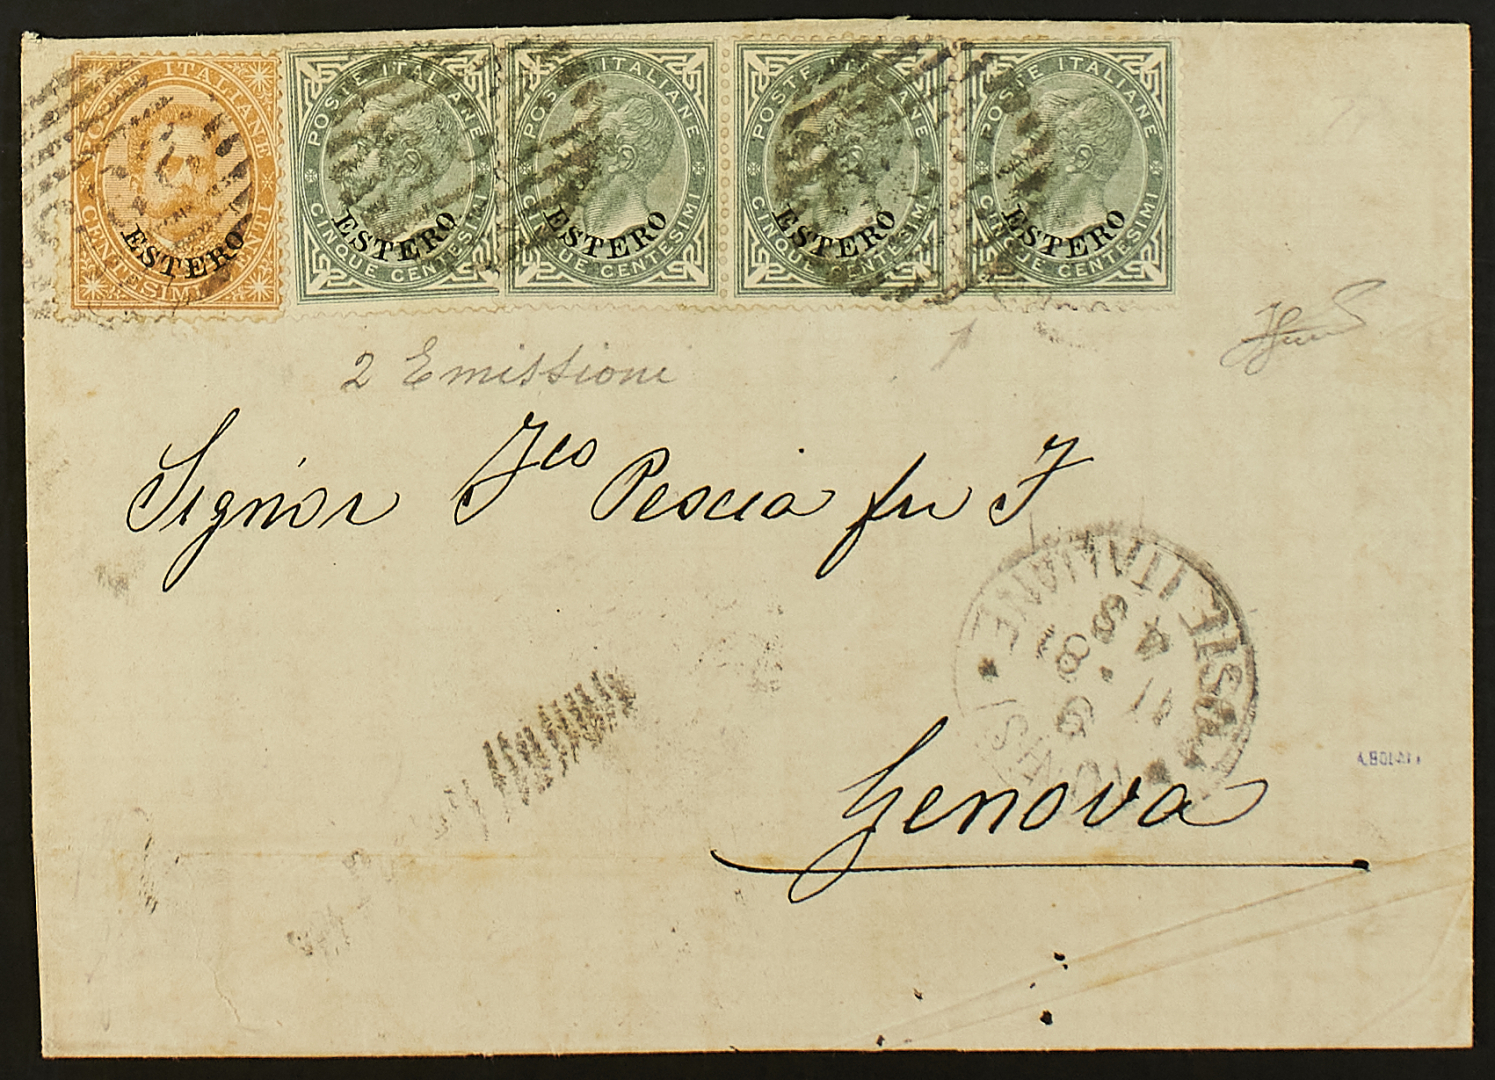 POSTE ITALIANE
ESTERO
CENTESIMI VENTI
POSTE ITALIANE
ESTERO
CINQUE CENTESIMI
POSTE ITALIANE
ESTERO
CINQUE CENTESIMI
POSTE ITALIANE
ESTERO
CINQUE CENTESIMI
POSTE ITALIANE
ESTERO
CINQUE CENTESIMI
2 Emissioni
Signor Fco Pescia fu F
POSTE ITALIANE
TUNISI
Genova